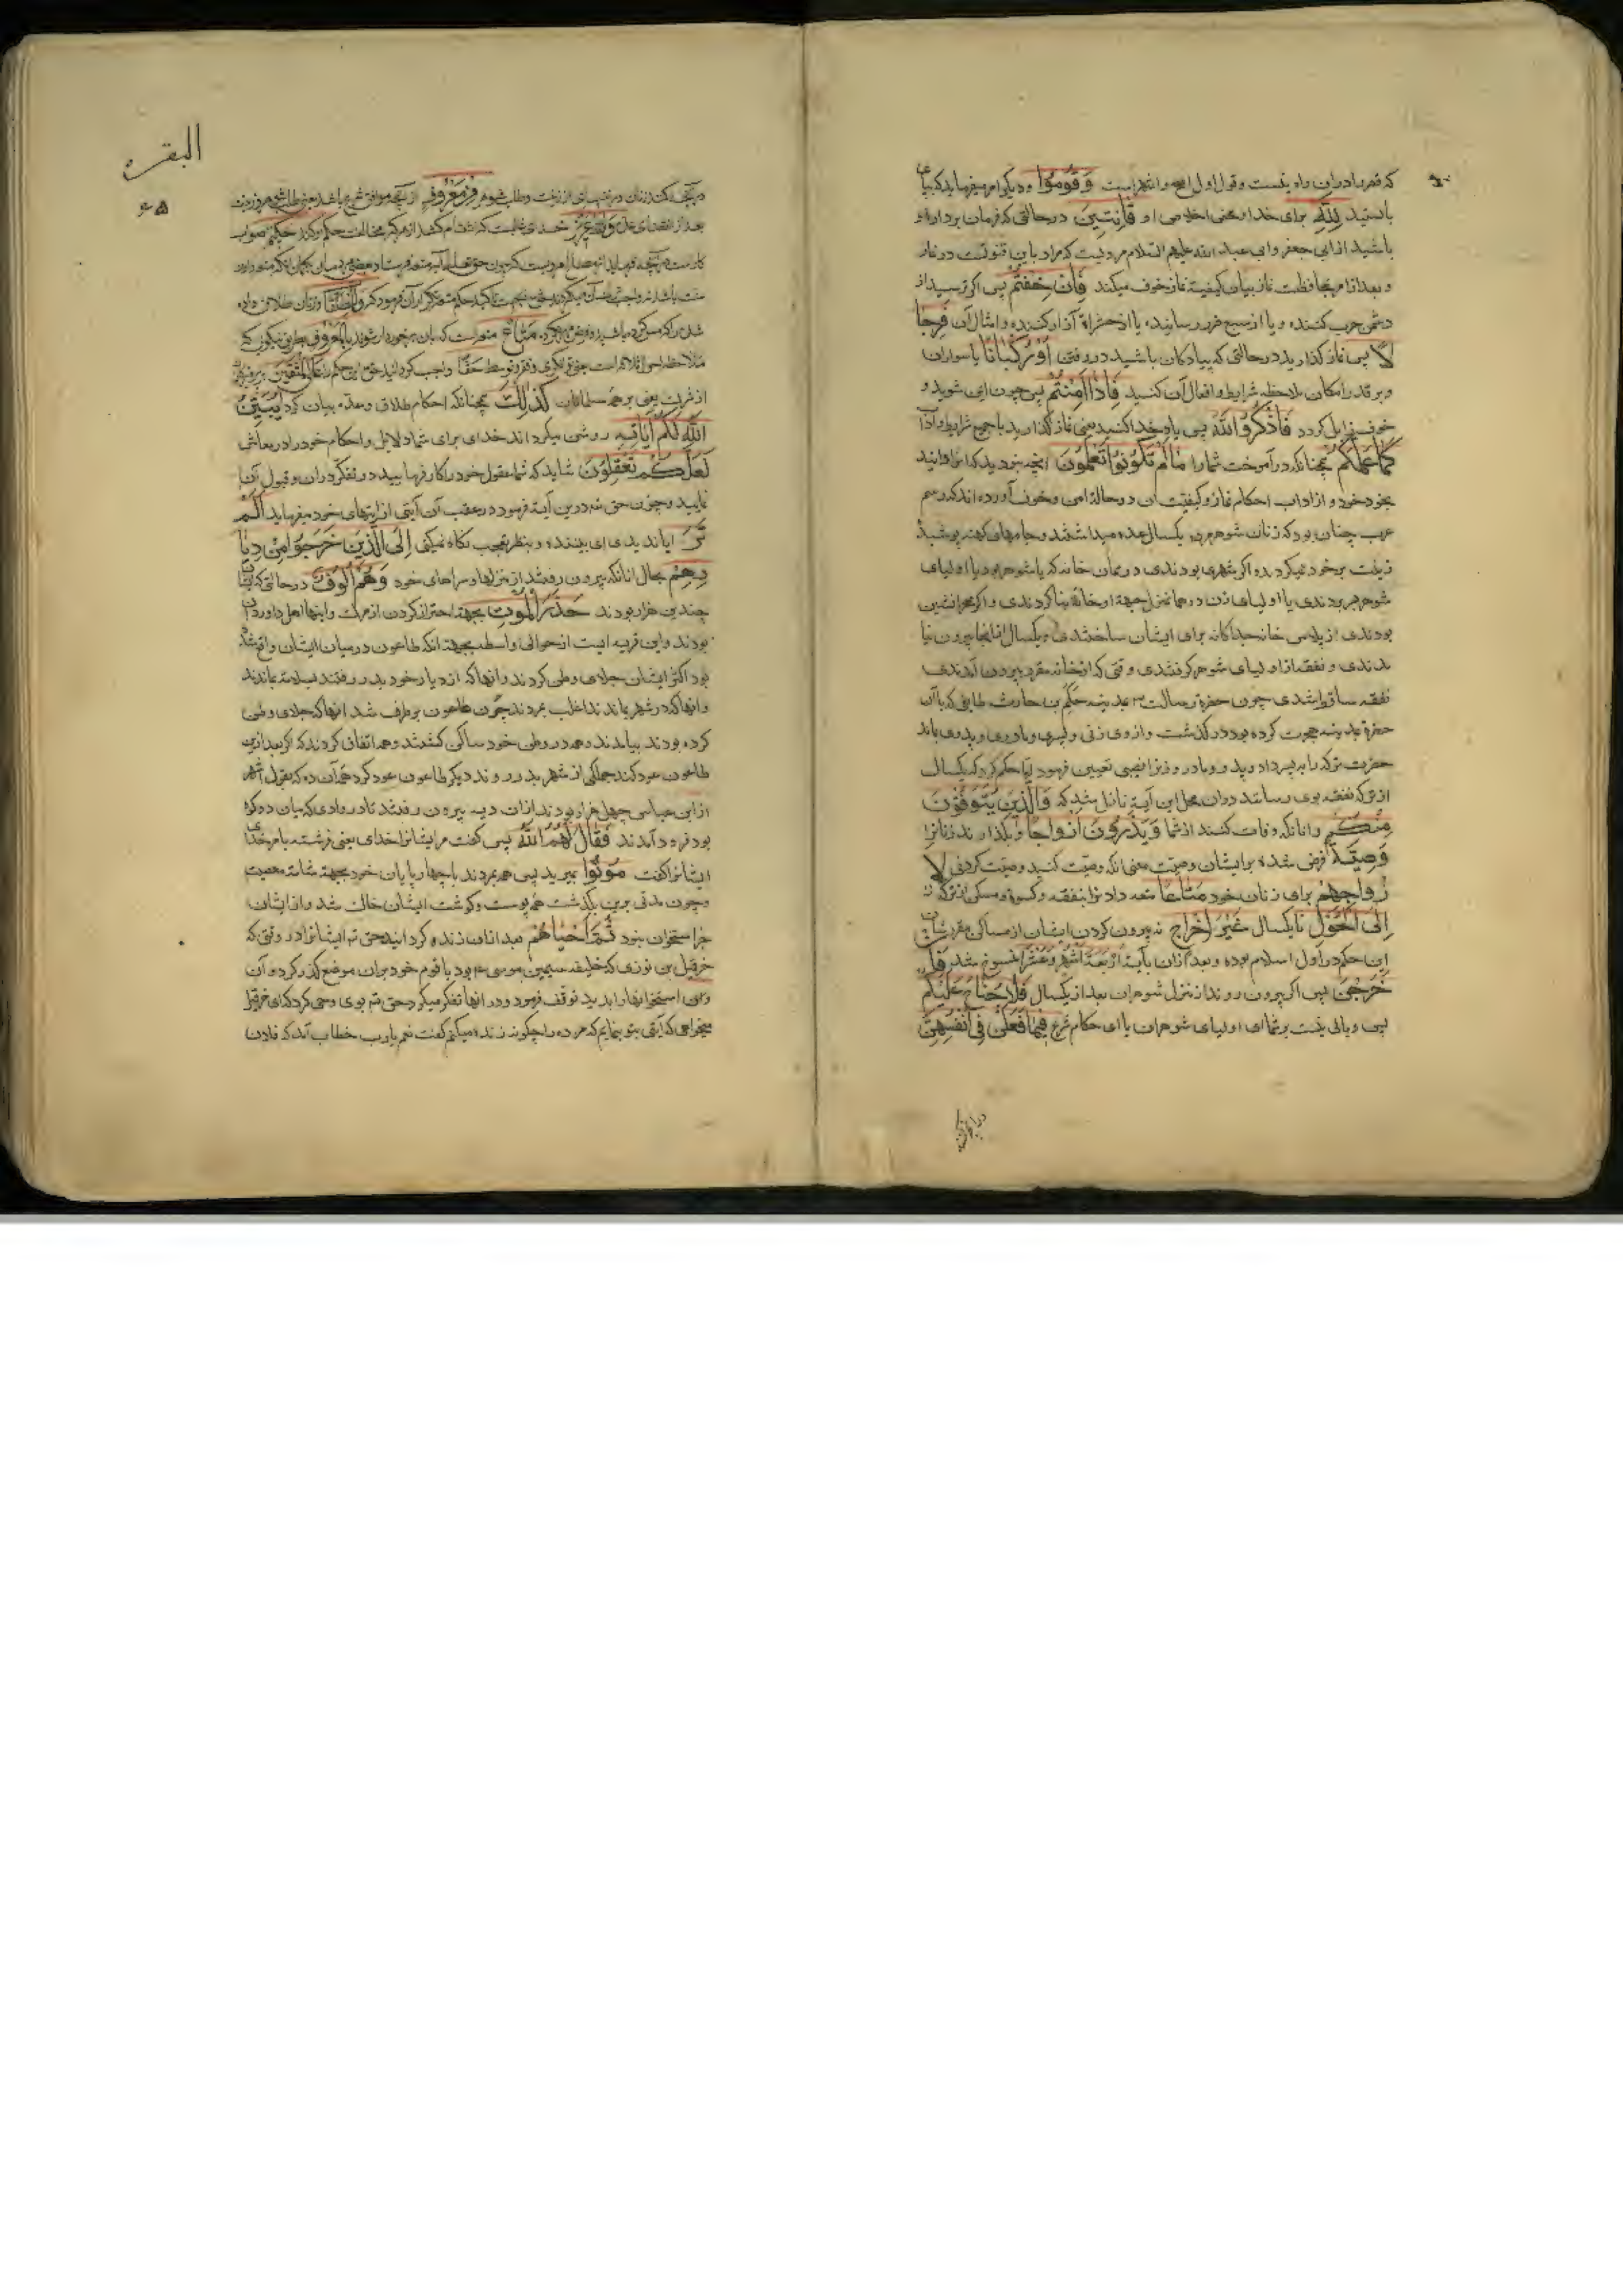 که قصر را در آن راه نیست و قول اول اصح و اشهر است وَقُومُوا و دیگر امر میفرماید که بپای
بایستید لِلَّهِ برای خدا یعنی اخلاص او قَانِتِينَ در حالتی که فرمان بردار او
باشید از ابی جعفر و ابی عبد الله علیهم السلام مرویست که مراد باین قنوتست در نماز
و بعد از امر بمحافظت نماز بیان کیفیت نماز خوف میکند فَإِنْ خِفْتُمْ پس اگر ترسید از
دشمن حرب کننده و یا از سبع ضرر رساننده یا از حشراة آزار کننده و امثال آن فَرِجَا
لًا پس نماز گذارید در حالتی که پیادگان باشید در رفتن أَوْ رُكْبَانًا یا سواران
و بر قدر امکان ملاحظه شرایط و افعال آن کنید فَإِذَا أَمِنْتُمْ پس چون ایمن شوید و
خوف زایل گردد فَاذْكُرُوا اللَّهَ پس یاد خدا کنید یعنی نماز گذارید با جمیع شرایط و آداب
كَمَا عَلَّمَكُمْ همچنانکه در آموخت شما را مَا لَمْ تَكُونُوا تَعْلَمُونَ آنچه نبودید که آنرا دانید
بخود خود و از اداب احکام نماز و کیفیت آن در حالة امن و خوف آورده اند که رسم
عرب چنان بود که زنان شوهر مرده یکسال عده میداشتند و جامهای کهنه پوشیده
زینت بر خود نمیکردند و اگر شهری بودندی در همان خانه که با شوهر بودند یا اولیای
شوهر بودندی یا اولیای زن در همان منزل جهة او خانه بنا کردندی و اگر صحرانشین
بودندی از پلاس خانه جداگانه برای ایشان ساختندی و یکسال از انجا بیرون نیا
مدندی و نفقه از اولیای شوهر گرفتندی و وقتی که از خانه مقرر بیرون آمدندی
نفقه ساقط شدی چون حضرة رسالت ص بمدینه حکیم بن حارث طایفی که با آن
حضرة بمدینه هجرت کرده بود در گذشت و از وی زنی و پسری و مادری و پدری بماند
حضرت ترکه را بپسر داد و پدر و مادر و زنرا نصیبی تعیین فرمود اما حکم کرد که یکسال
از ترکه نفقه بوی رسانند در آن محل این آیة نازل شد که وَالَّذِينَ يُتَوَفَّوْنَ
مِنْكُمْ و آنانکه وفات کنند از شما وَيَذَرُونَ أَزْوَاجًا و بگذارند زنانرا
وَصِيَّةً فرض شده بر ایشان وصیت یعنی آنکه وصیت کنید وصیت کردنی لِأَ
زْوَاجِهِمْ برای زنان خود مَتَاعًا متعه داد نرا بنفقه و کسوة و مسکن از ترکه
إِلَى الْحَوْلِ تا یکسال غَيْرَ إِخْرَاجٍ نه بیرون کردن ایشان از مساکن مقرر شان
این حکم در اول اسلام بوده و بعد از آن بآیة أَرْبَعَةَ أَشْهُرٍ وَعَشْرًا منسوخ شد فَإِنْ
خَرَجْنَ پس اگر بیرون روند از منزل شوهران بعد از یکسال فَلَا جُنَاحَ عَلَيْكُمْ
پس وبالی نیست بر شما ای اولیای شوهران یا ای حکام شرع فِيمَا فَعَلْنَ فِي أَنْفُسِهِنَّ
البقره
۶۵
بعد از انقضای عدة وَاللَّهُ عَزِيزٌ خدای غالبست که انتقام کشد از هر که مخالفت حکم او کند حَكِيمٌ صواب
از شرك یعنی بر همه مسلمانان كَذَلِكَ همچنانکه احکام طلاق و عده بیان کرد يُبَيِّنُ
اللَّهُ لَكُمْ آيَاتِهِ روشن میگرداند خدای برای شما دلایل و احکام خود را در معاش
لَعَلَّكُمْ تَعْقِلُونَ شاید که شما عقول خود را کار فرمایید در تفکر در آن و قبول آن
نمایید و چون حق تم درین آیة فرموده در عقب آن آیتی از آیتهای خود میفرماید أَلَمْ
تَرَ ایا ندیدی ای بیننده و بنظر تعجب نگاه نمیکنی إِلَى الَّذِينَ خَرَجُوا مِنْ دِيَا
رِهِمْ بحال آنانکه بیرون رفتند از منزلها و سراهای خود وَهُمْ أُلُوفٌ در حالتی که ایشان
چندین هزار بودند حَذَرَ الْمَوْتِ بجهة احتراز کردن از مرك و اینها اهل داوردان
بودند و این قریه ایست از حوالی واسط بجهة آنکه طاعون در میان ایشان واقع شده
بود اکثر ایشان جلای وطن کردند و آنها که از دیار خود بدر رفتند بسلامة بماندند
و آنها که در شهر بماندند اغلب بمردند چون طاعون بر طرف شد آنها که جلای وطن
کرده بودند بیامدند و همه در وطن خود ساکن گشتند و همه اتفاق کردند که اگر بعد ازین
طاعون عود کند جملکی از شهر بدر روند دیگر طاعون عود کرد همه آن ده که بقول اشهر
از ابن عباس چهل هزار بودند از آن دیه بیرون رفتند تا در وادی که میان دو کوه
بود فرود آمدند فَقَالَ لَهُمُ اللَّهُ پس گفت مر ایشانرا خدای یعنی فرشته بامر خدای
ایشانرا گفت مُوتُوا بمیرید پس همه بمردند با چهارپایان خود بجهة شامة معصیت
و چون مدتی برین بگذشت همه پوست و گوشت ایشان خاك شد و از ایشان
جز استخوان نبود ثُمَّ أَحْيَاهُمْ بعد از آن زنده گردانید حق تم ایشانرا در وقتی که
خرقیل بن نوزی که خلیفه سیمین موسی ع بود با قوم خود بر آن موضع گذر کرد و آن
وادی استخوانها را بدید توقف فرمود و در آنها تفکر میکرد حق تم بوی وحی کرد که ای خرقیل
میخواهی که آیتی بتو بنمایم که مرده را چگونه زنده میکنم گفت نعم یا رب خطاب آمد که فلان